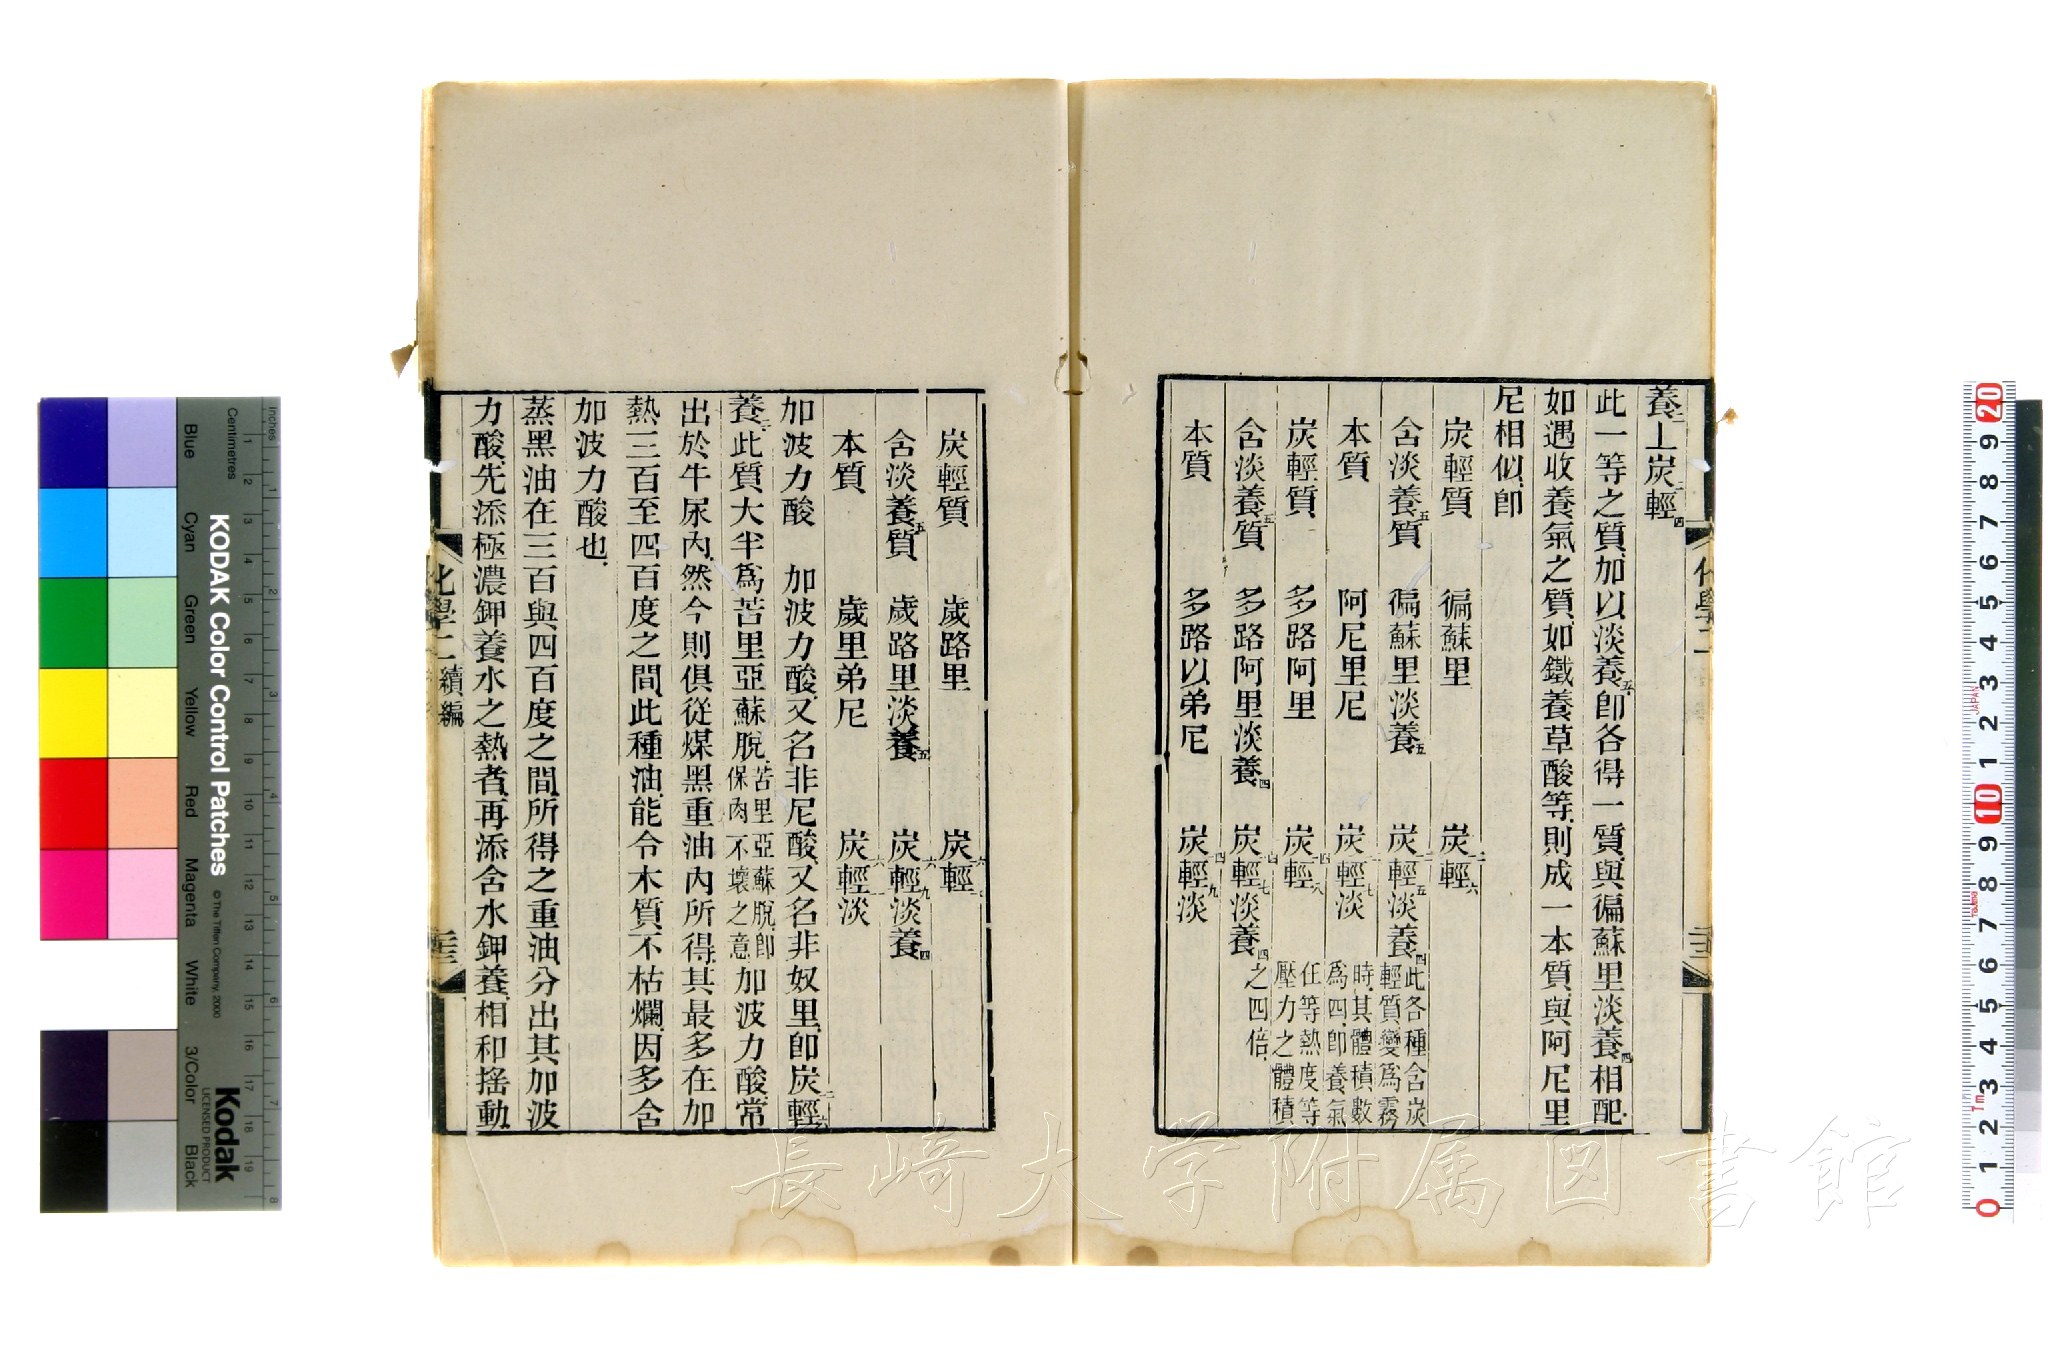 養二⊥炭輕四
此一等之質加以淡養五卽各得一質與徧蘇里淡養四相配
如遇收養氣之質如鐵養草酸等則成一本質與阿尼里
尼相似卽
炭輕質 徧蘇里 炭輕六
含淡養五質 徧蘇里淡養五 炭輕五淡養四 此各種含炭輕質變爲霧時其體積數爲四卽養氣任等熱度等壓力之體積之四倍
本質 阿尼里尼 炭輕七淡
炭輕質 多路阿里 炭十四輕八
含淡養五質 多路阿里淡養四 炭十四輕七淡養四
本質 多路以弟尼 炭十四輕九淡
化學二
炭輕質 歲路里 炭輕
含淡養五質 歲路里淡養五 炭十六輕九淡養四
本質 歲里弟尼 炭輕淡
加波力酸 加波力酸又名非尼酸又名非奴里卽炭輕
養二此質大半爲苦里亞蘇脫苦里亞蘇脫卽保肉不壞之意加波力酸常
出於牛尿內然今則俱從煤黑重油內所得其最多在加
熱三百至四百度之間此種油能令木質不枯爛因多含
加波力酸也
蒸黑油在三百與四百度之間所得之重油分出其加波
力酸先添極濃鉀養水之熱者再添含水鉀養相和搖動
化學二續編
長崎大学附属図書館
KODAK Color Control Patches
© The Tiffen Company, 2000
Kodak
LICENSED PRODUCT
Inches
Centimetres
Blue Cyan Green Yellow Red Magenta White 3/Color Black
JAPAN